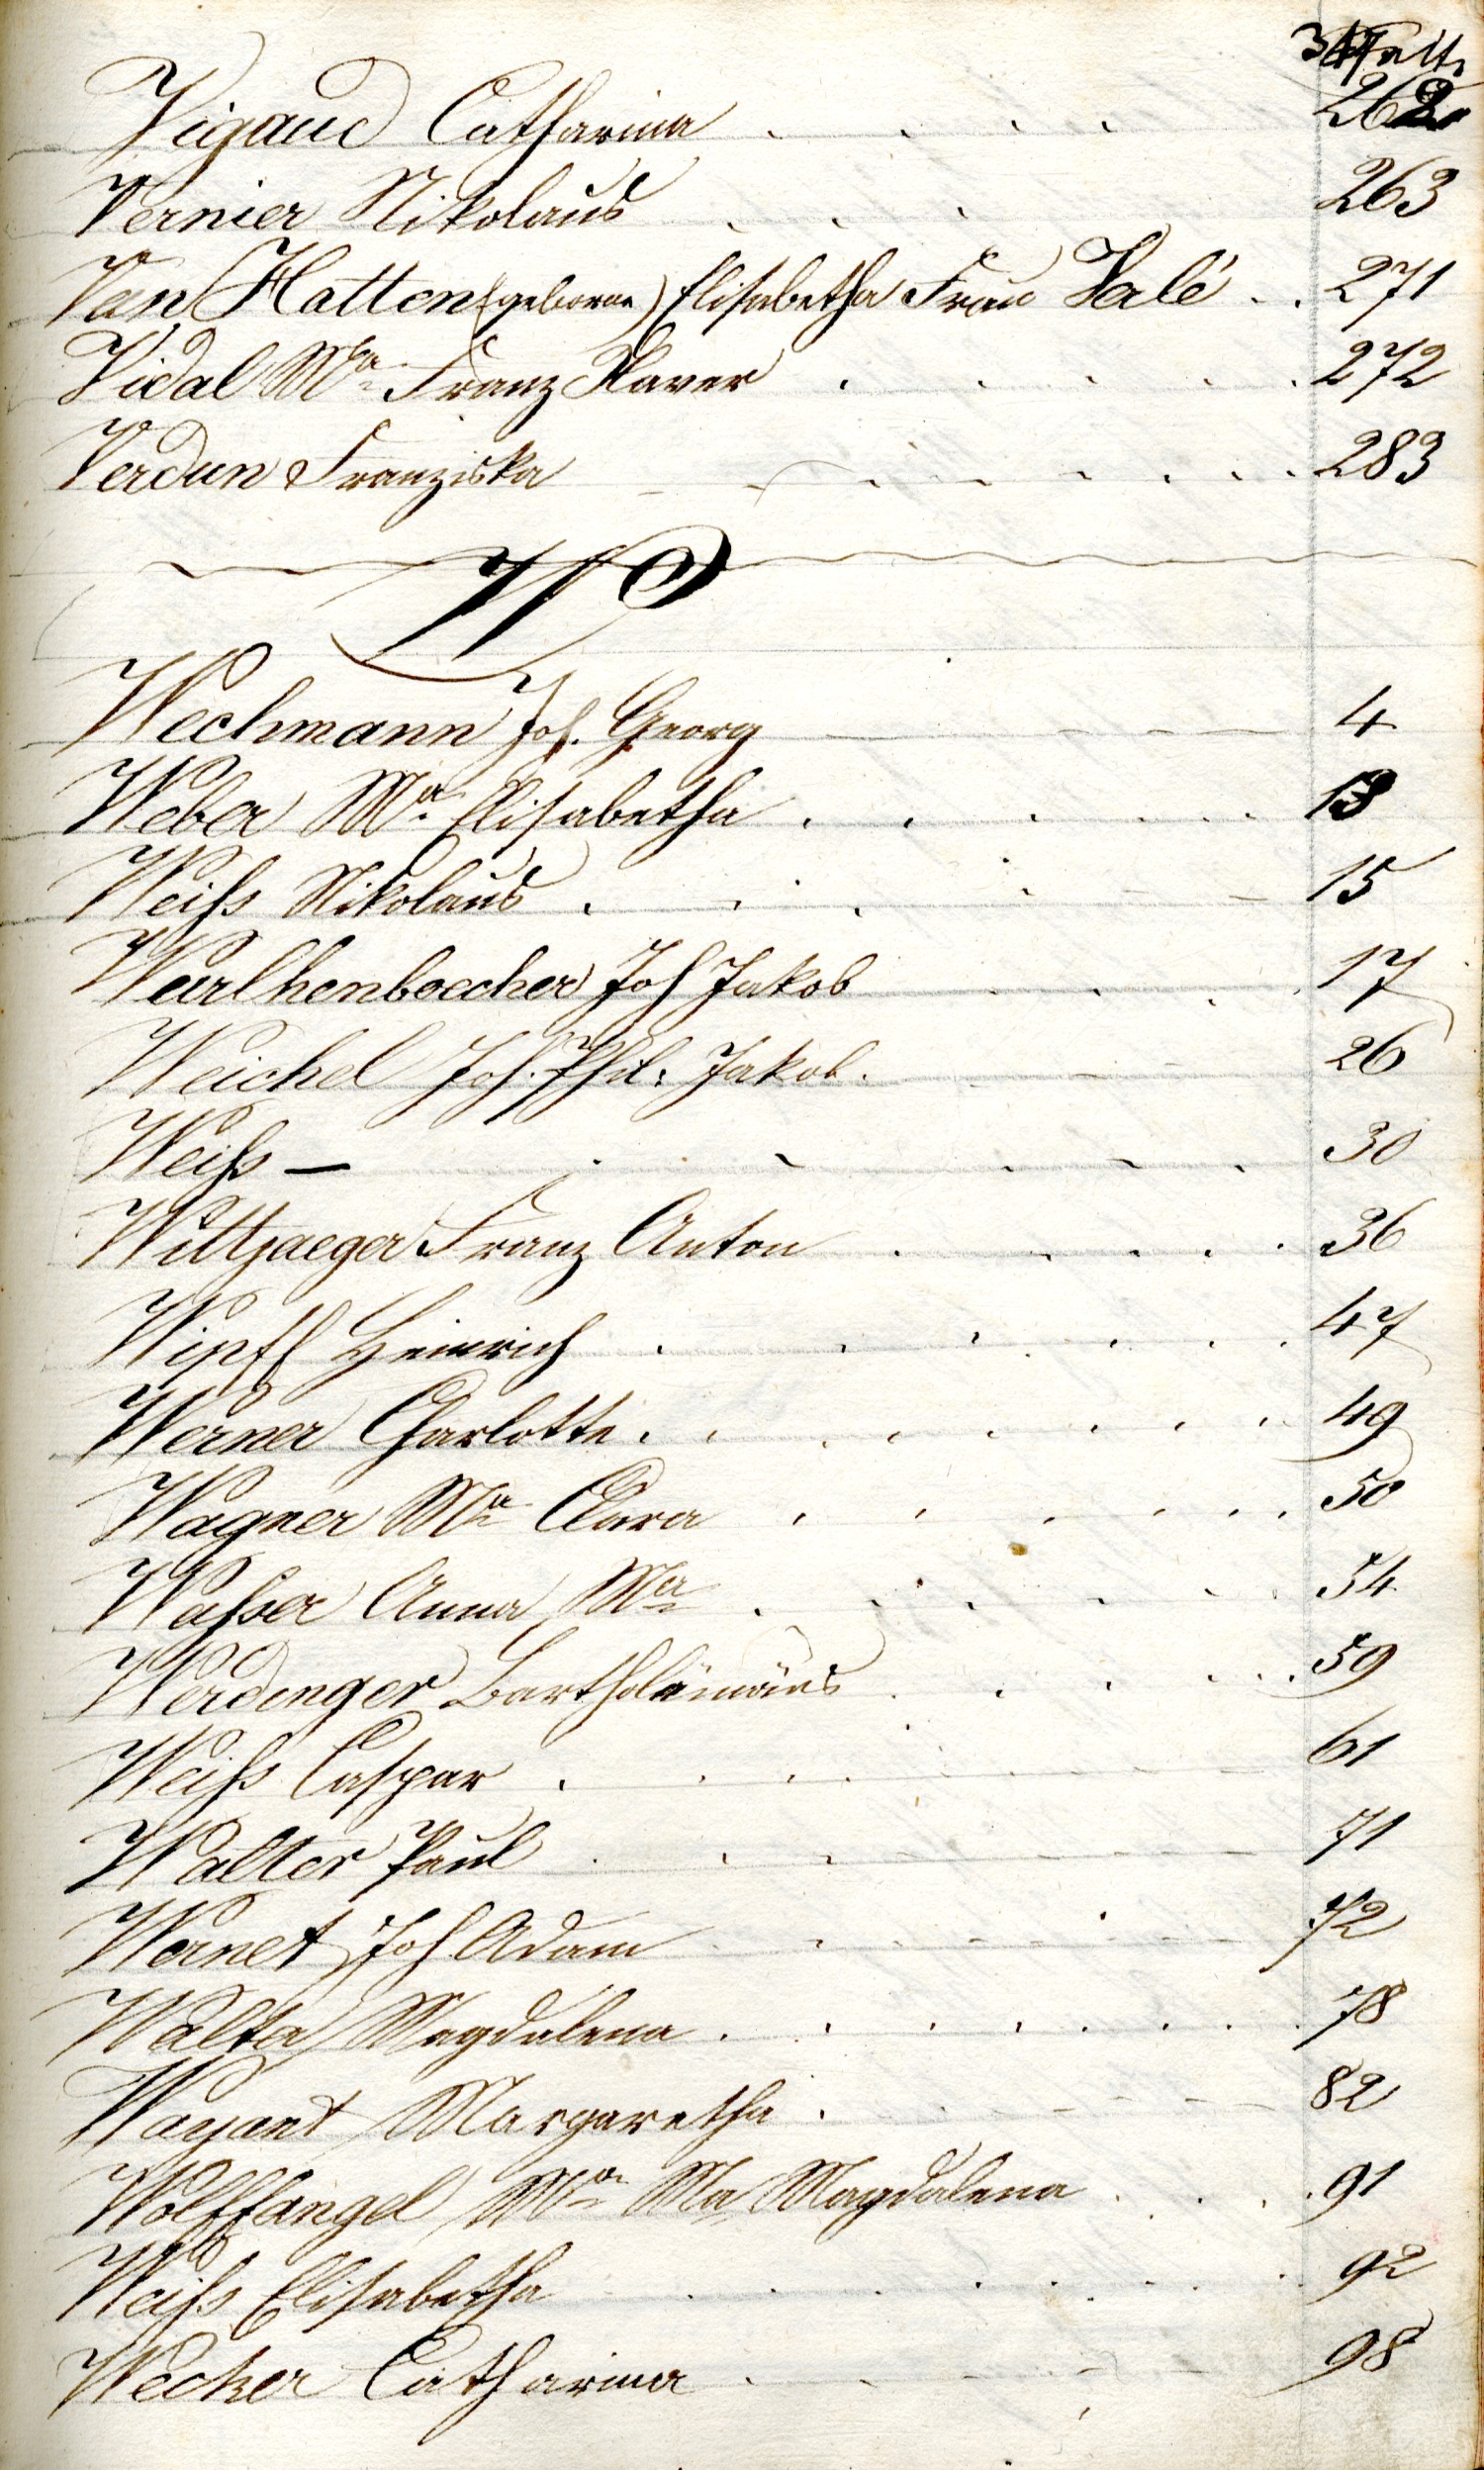 Vigaud Catharina . . . . 262
Vernier Nikolaus . . . 263
Van Hatten (geborne) Elisabetha Frau Valé . . 271
Vidal Mª Franz Xaver . . . . . 272
Verdun Franziska . . . . . . 283
W
Wechmann Joh. Georg 4
Weber Mª Elisabetha . . . . . 13
Weiss Nikolaus . . . . 15
Joh Jakob . . . 17
Weichel Joh. Phil. Jakob. 26
Weiss — . . . . . 30
Wiltjaeger Franz Anton . . . . . 36
Wipff Heinrich . . . . . . 47
Werner Charlotte . . . . . . . 49
Wagner Mª Clara . . . . . . 50
Wasser Anna Mª . . . . . 54
Werdenger Bartholämäus . . . . 59
Weiss Caspar . . . . 61
Walter Paul . . . 71
Wernet Joh Adam 72
Walter Magdalena . . . . . . 78
Wayant Margaretha . 82
Wolffangel Mª Ma Magdalena . . . 91
Weiss Elisabetha . . . . . . 92
Wecker Catharina . . . 98